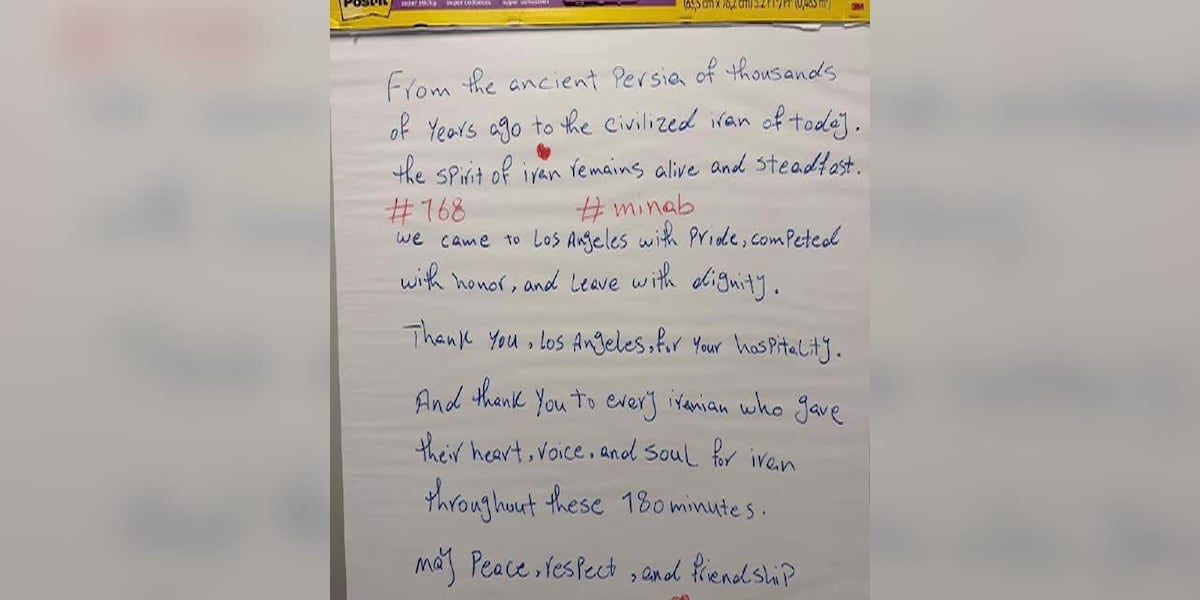 Post-it super sticky super collantes super adhesivas (63,5 cm x 76,2 cm) 5.2 FT²/Pi² (0,483 m²) 3M
From the ancient Persia of thousands
of Years ago to the civilized iran of today.
the spirit of iran remains alive and steadfast.
#168 #minab
we came to Los Angeles with Pride, competed
with honor, and Leave with dignity.
Thank You, Los Angeles, for Your hospitality.
And thank You to every iranian who gave
their heart, voice, and soul for iran
throughout these 180 minutes.
may Peace, respect, and friendship